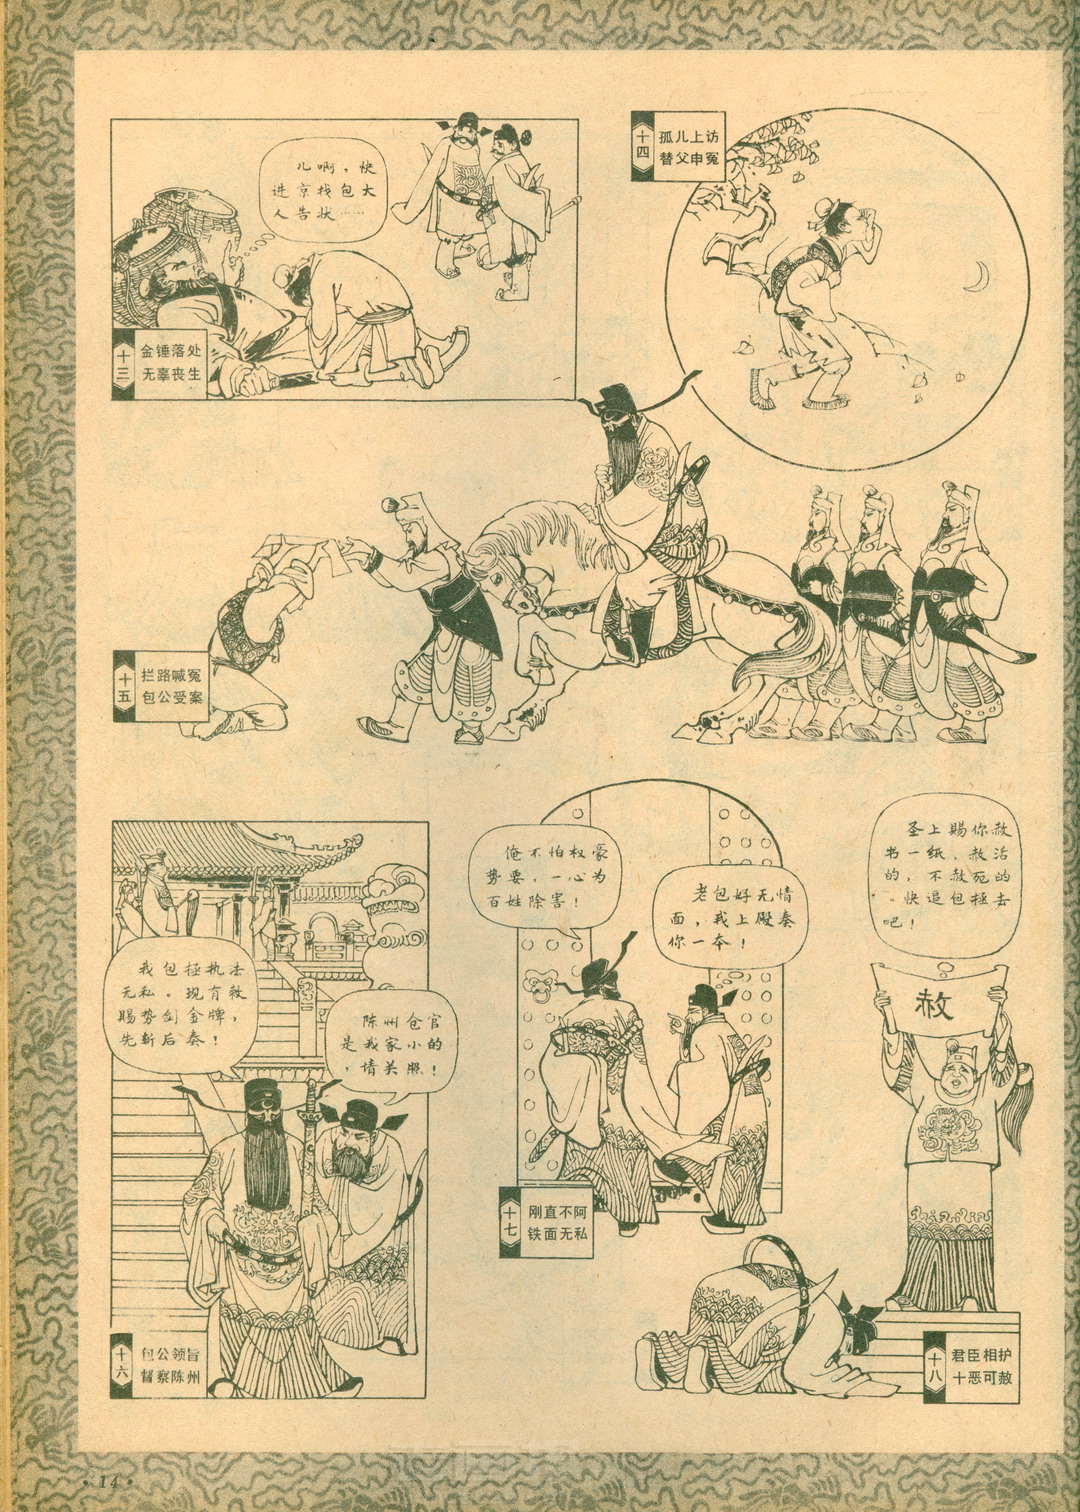 儿啊，快
进京找包大
人告状……
十三
金锤落处
无辜丧生
十四
孤儿上访
替父申冤
十五
拦路喊冤
包公受案
我包拯执法
无私。现有敕
赐势剑金牌，
先斩后奏！
陈州仓官
是我家小的
，情关照！
十六
包公领旨
督察陈州
俺不怕权豪
势要，一心为
百姓除害！
老包好无情
面，我上殿奏
你一本！
十七
刚直不阿
铁面无私
圣上赐你赦
书一纸，赦活
的，不赦死的
。快追包拯去
吧！
赦
十八
君臣相护
十恶可赦
·14·